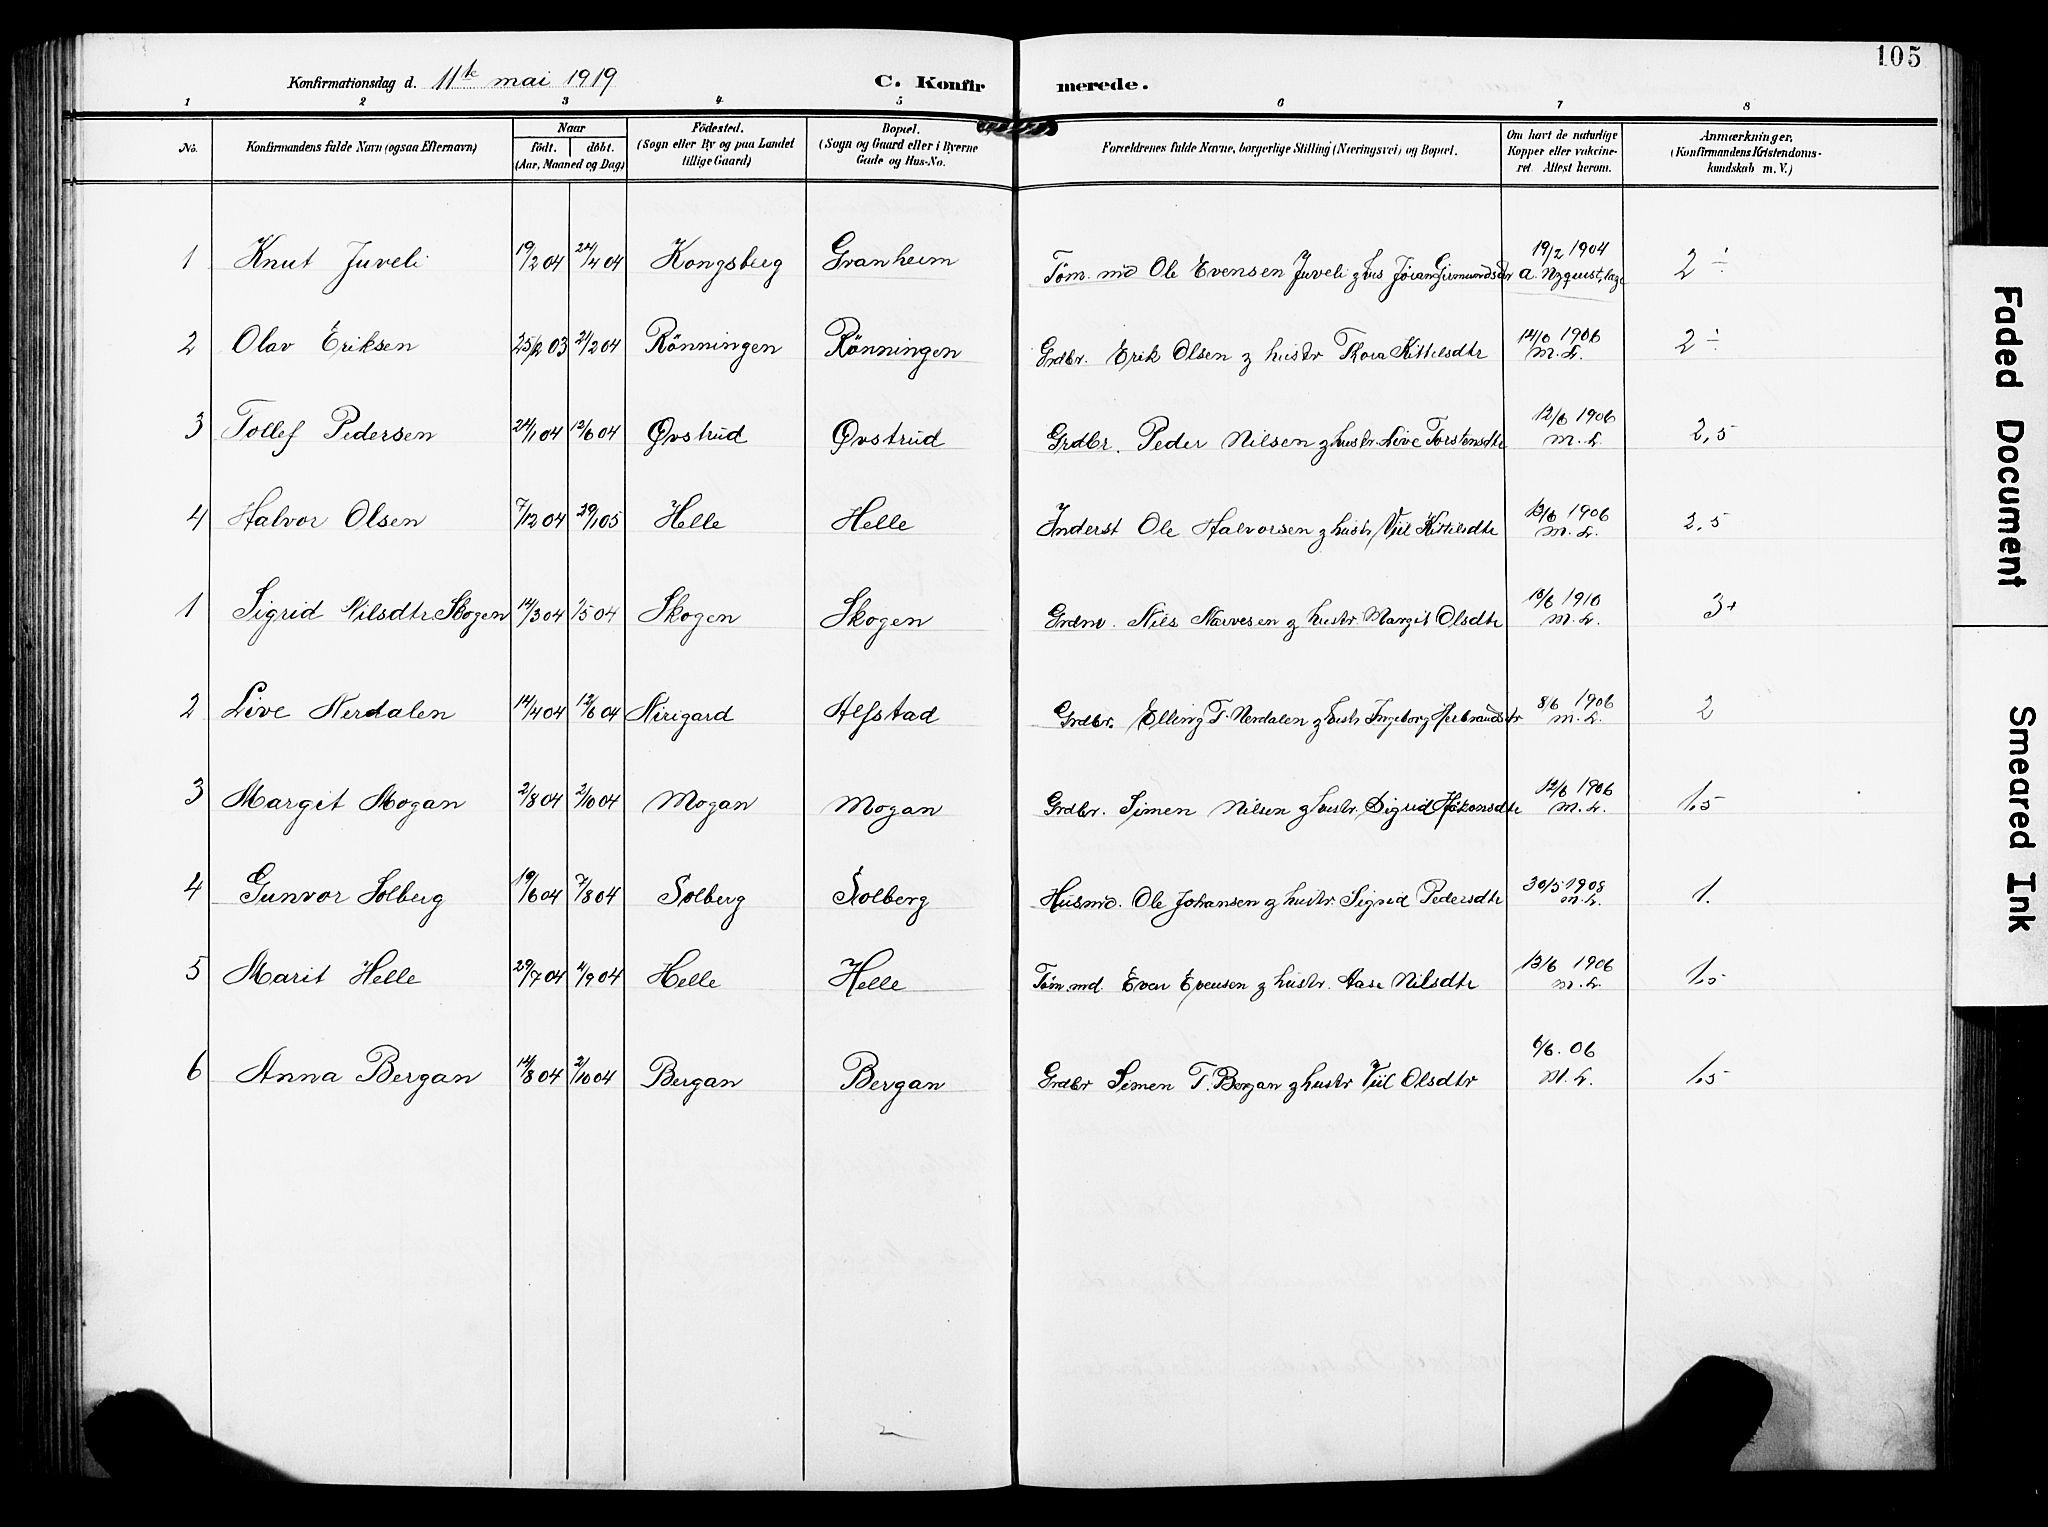 105
Konfirmationsdag d. 11te mai 1919 C. Konfirmerede.
1 2 3 4 5 6 7 8
No. Konfirmandens fulde Navn (ogsaa Efternavn) Naar født. døbt. (Aar, Maaned og Dag) Födested. (Sogn eller By og paa Landet tillige Gaard) Bopæl. (Sogn og Gaard eller i Byerne Gade og Hus-No. Forældrenes fulde Navne, borgerlige Stilling (Næringsvei) og Bopæl. Om havt de naturlige Kopper eller vakcineret. Attest herom. Anmærkninger. (Konfirmandens Kristendomskundskab m. V.)
1 Knut Juveli 19/2 04 24/4 04 Kongsberg Granheim Tøm. md Ole Evensen Juveli g hus Jöran 19/2 1904 a. lage 2 ÷
2 Olav Eriksen 25/2 03 21/2 04 Rönningen Rönningen Grdbr. Erik Olsen g hustr Thora Kittilsdtr 12/6 1906 M. L. 2 ÷
3 Tollef Pedersen 24/1 04 12/6 04 Øvstrud Øvstrud Grdbr. Peder Nilsen g hustr. Live Torstensdtr 12/6 1906 M. L. 2,5
4 Halvor Olsen 7/12 04 29/1 05 Helle Helle Inderst Ole Halvorsen g hustr Viil Kittilsdtr 13/6 1906 M. L. 2,5
1 Sigrid Nilsdtr Skogen 14/3 04 1/5 04 Skogen Skogen Nils Narvesen g hustr. Margit Olsdtr 10/6 1910 M. L. 3+
2 Live Nerdalen 14/4 04 12/6 04 Nirigard Alfstad Grdbr. Elling T. Nerdalen g hustr Ingeborg Herbrandsdtr 8/6 1906 M. L. 2
3 Margit Mogan 2/8 04 2/10 04 Mogan Mogan Grdbr. Simen Nilsen g hustr. Sigrid Håkonsdtr 12/6 1906 M. L. 1,5
4 Gunvor Solberg 19/6 04 7/8 04 Solberg Solberg Husmd. Ole Johansen g hustr. Sigrid Pedersdtr 30/5 1908 M. L. 1.
5 Marit Helle 29/7 04 4/9 04 Helle Helle Tøm. md. Even Evensen g hustr. Aase Nilsdtr 13/6 1906 M. L. 1,5
6 Anna Bergan 14/8 04 2/10 04 Bergan Bergan Grdbr Simen T. Bergan g hustr Viil Olsdtr 6/6. 06 M. L. 1,5
Faded Document
Smeared Ink